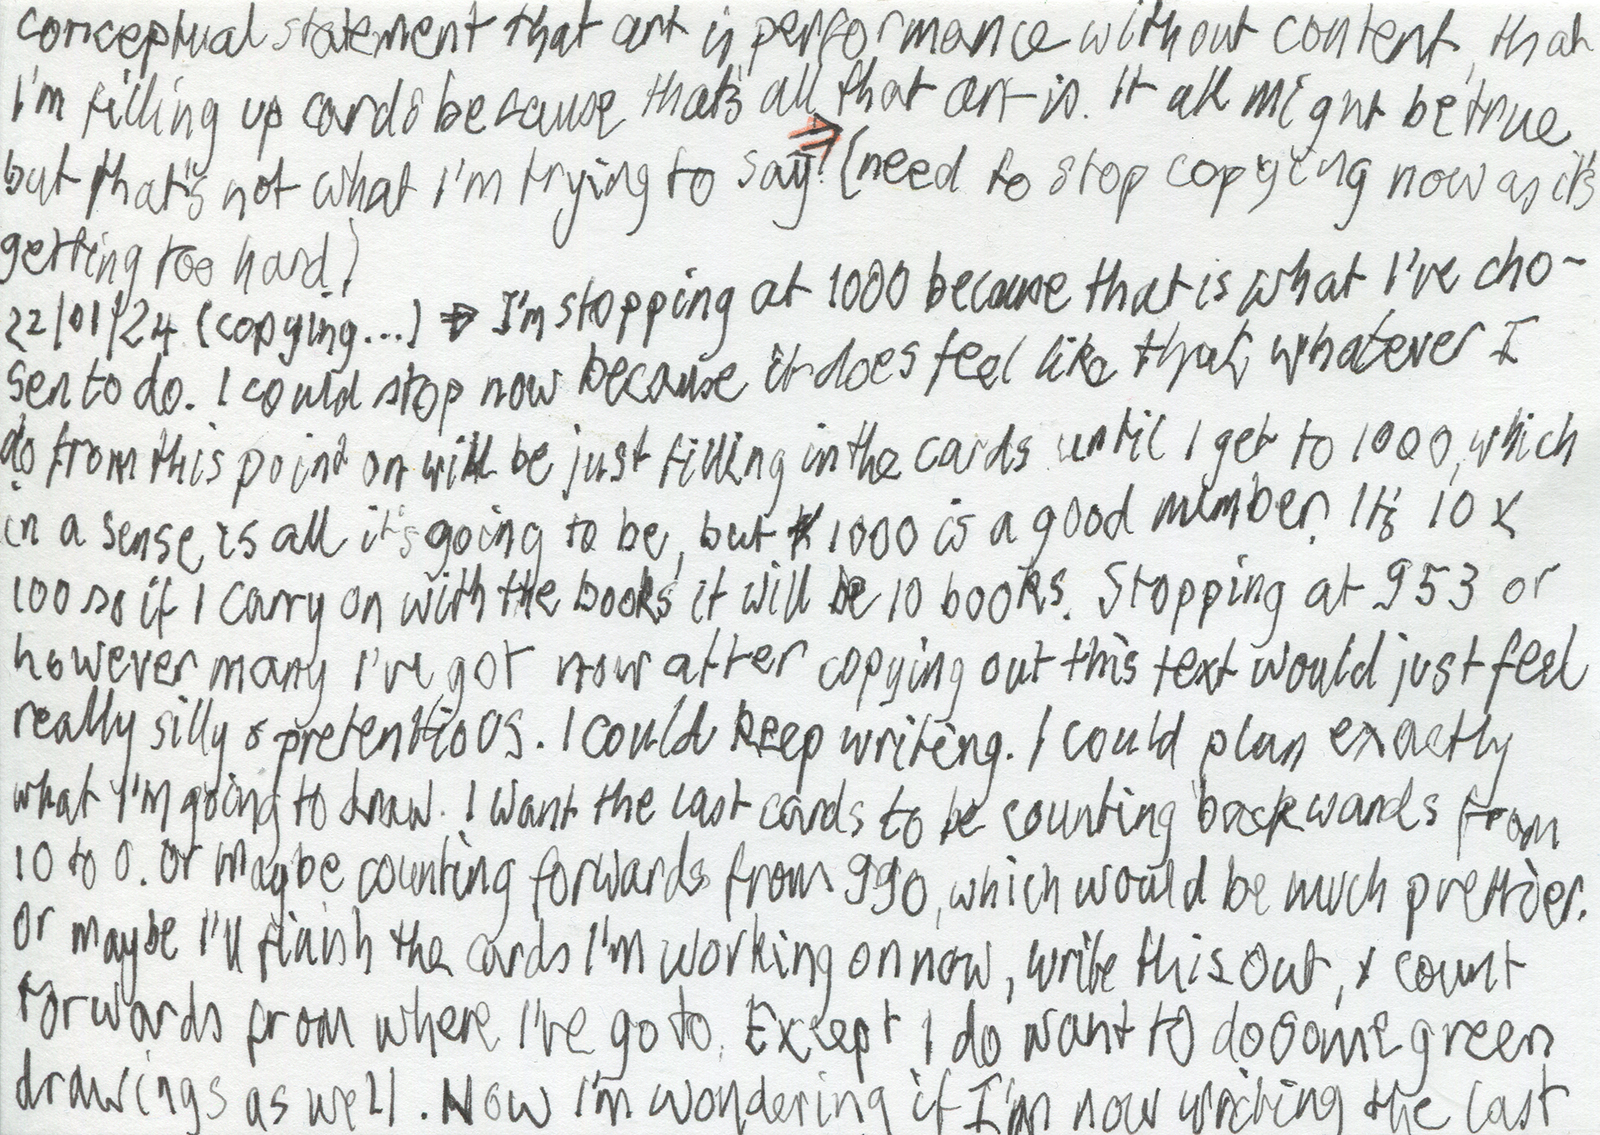 conceptual statement that art is performance without content, that
I'm filling up cards because that's all that art is. It all might be true
but that's not what I'm trying to say. ⇒ (need to stop copying now as it's
getting too hard)
22/01/24 (copying...) ⇒ I'm stopping at 1000 because that is what I've cho-
sen to do. I could stop now because it does feel like that, whatever I
do from this point on will be just filling in the cards until I get to 1000, which
in a sense is all it's going to be, but 1000 is a good number. It's 10 x
100 so if I carry on with the books it will be 10 books. Stopping at 953 or
however many I've got now after copying out this text would just feel
really silly & pretentious. I could keep writing. I could plan exactly
what I'm going to draw. I want the last cards to be counting backwards from
10 to 0. Or maybe counting forwards from 990, which would be much prettier.
Or maybe I'll finish the cards I'm working on now, write this out, & count
forwards from where I've go to. Except I do want to do some green
drawings as well. Now I'm wondering if I'm now writing the last